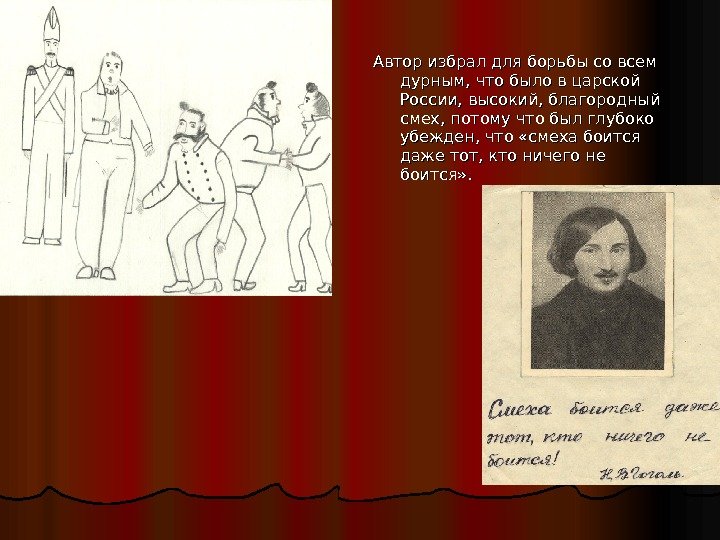 Автор избрал для борьбы со всем
дурным, что было в царской
России, высокий, благородный
смех, потому что был глубоко
убежден, что «смеха боится
даже тот, кто ничего не
боится».
Смеха боится даже
тот, кто ничего не
боится!
Н.В.Гоголь.